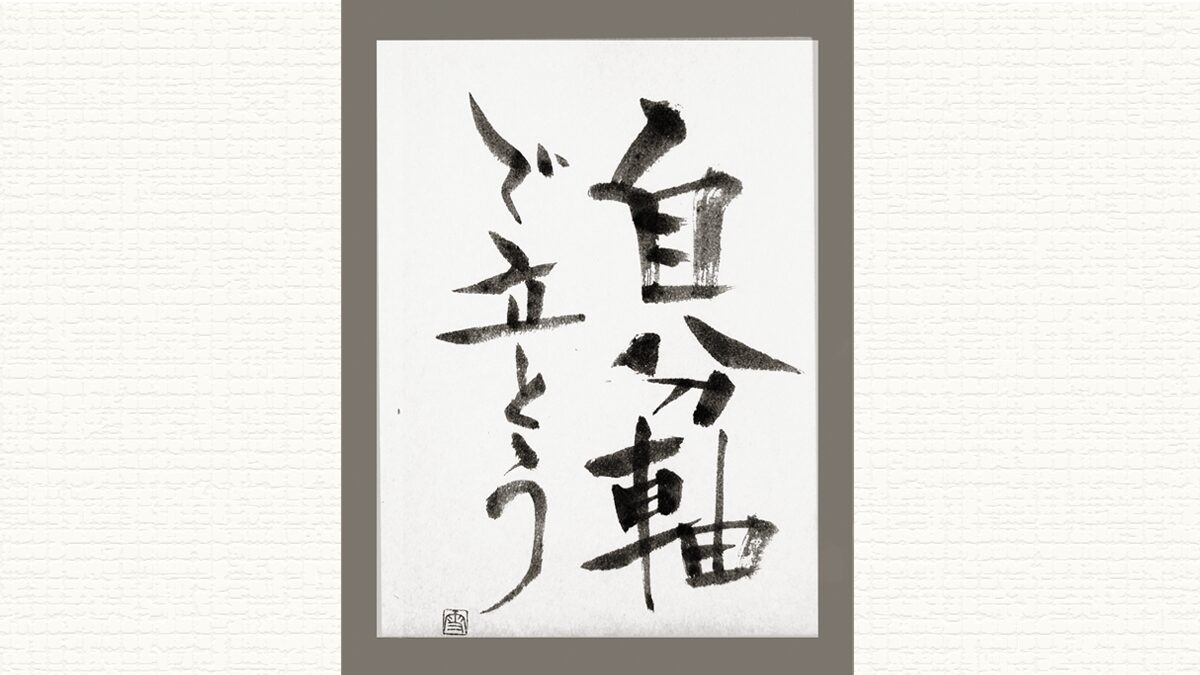 自分軸
で立とう
雪